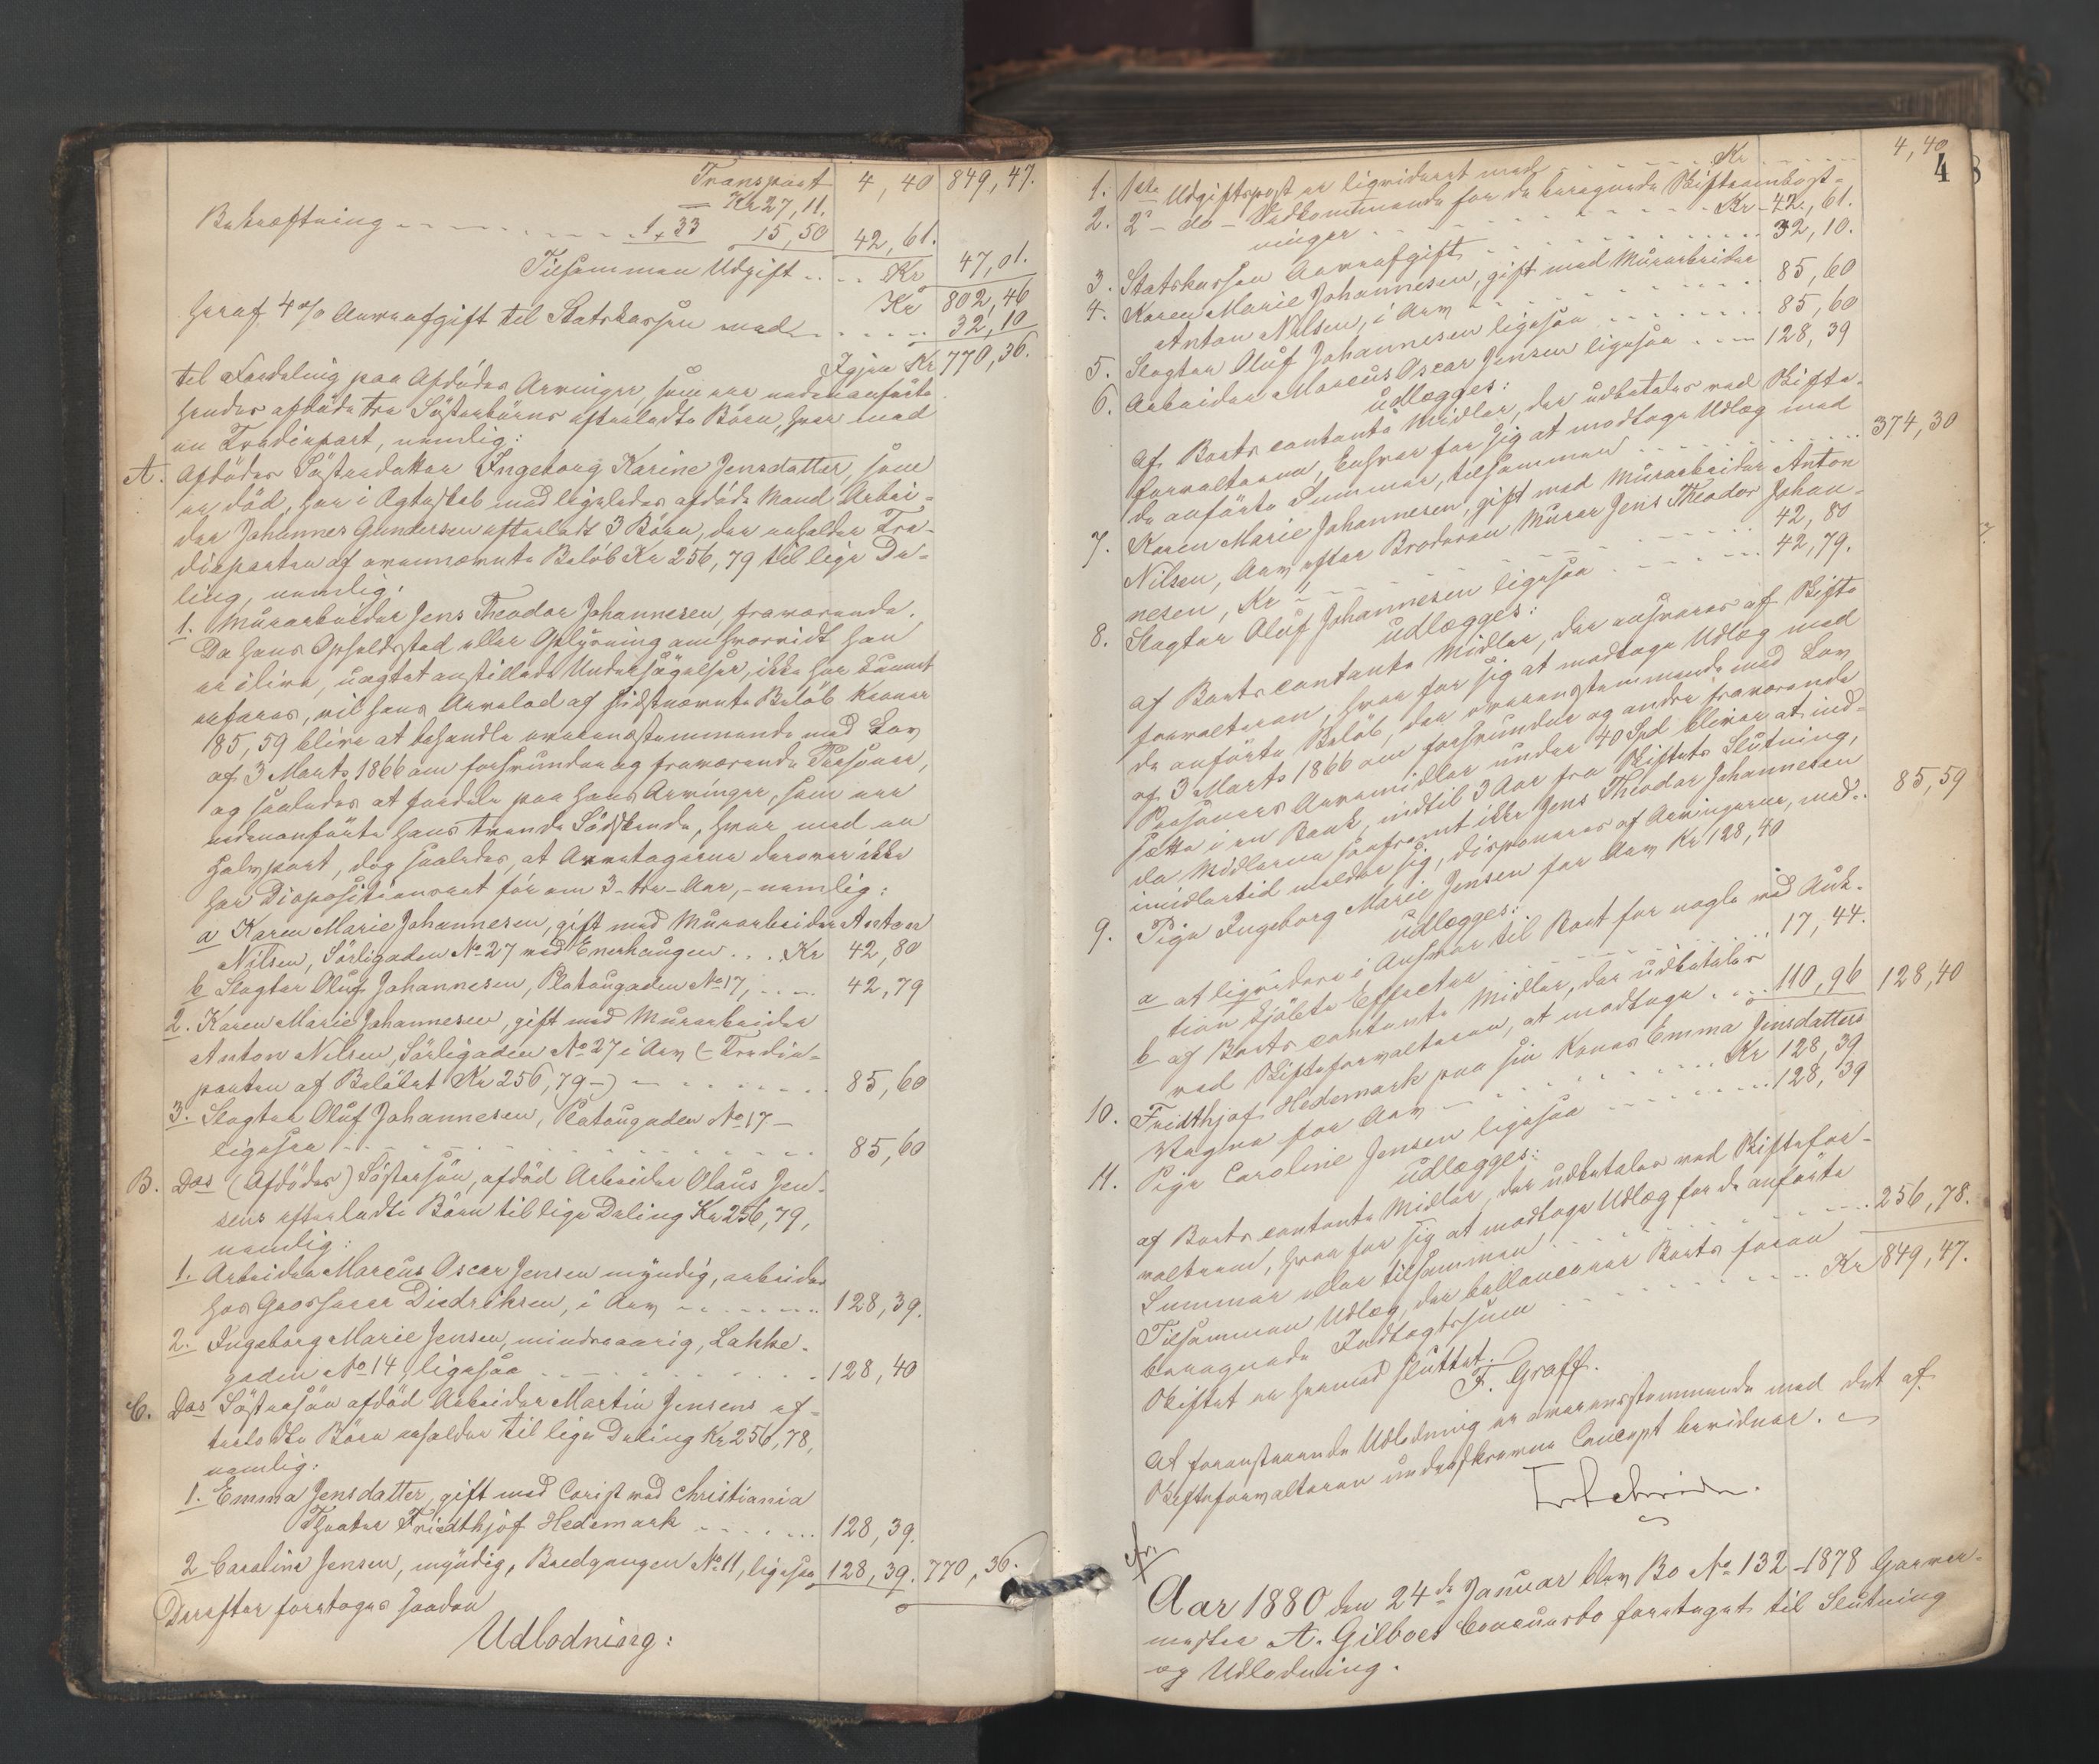 Transport 4,40 849,47.
= Kr 27,11.
Bekræftning 1,33 15,50 42,61.
Tilsammen Udgift Kr 47,01.
Kr 802,46
heraf 4 % Arveafgift til Statskassen med 32,10
Igjen Kr 770,36.
til Fordeling paa Afdødes Arvinger, som ere nedenanførte
hendes afdøde tre Søsterbørns efterladte Børn, hver med
en Trediepart, nemlig:
A. Afdødes Søsterdatter Ingeborg Karine Jensdatter, som
er død, har i Ægteskab med ligeledes afdøde Mand Arbei-
der Johannes Gundersen efterladt 3 Børn, der erholder Tre-
dieparten af ovennævnte Beløb Kr 256,79 til lige De-
ling, nemlig:
1. Murarbeider Jens Theodor Johannesen, fraværende.
Da hans Opholdsted eller Oplysning om hvorvidt han
er ilive, uagtet anstillede Undersøgelser, ikke har kunnet
erfares, vil hans Arvelod af sidstnævnte Beløb Kroner
85,59 blive at behandle overensstemmende med Lov
af 3 Marts 1866 om forsvundne og fraværende Personer,
og saaledes at fordele paa hans Arvinger, som ere
nedenanførte hans tvende Sødskende, hver med en
Halvpart, dog saaledes, at Arvetagerne derover ikke
har Dispositionsret før om 3 - tre - Aar, - nemlig:
a Karen Marie Johannesen, gift med Murarbeider Anton
Nilsen, Sörligaden No 27 ved Enerhaugen Kr 42,80
b Slagter Oluf Johannesen, Platougaden No 17, 42,79
2. Karen Marie Johannesen, gift med Murarbeider
Anton Nilsen, Sörligaden No 27 i Arv (- Tredie-
parten af Beløbet Kr 256,79 -) 85,60
3. Slagter Oluf Johannesen, Platougaden No 17 -
ligesaa 85,60
B. Des (Afdødes) Søstersøn, afdød Arbeider Olaus Jen-
sens efterladte Børn til lige Deling Kr 256,79,
nemlig:
1. Arbeider Marcus Oscar Jensen myndig, arbeider
hos Grosserer Diedriksen, i Arv 128,39.
2. Ingeborg Marie Jensen, mindreaarig, Lakke-
gaden No 14, ligesaa 128,40
C. Des Søstersøn afdød Arbeider Martin Jensens ef-
terladte Børn erholder til lige Deling Kr 256,78,
nemlig:
1. Emma Jensdatter, gift med Corist ved Christiania
Theater Friedthjof Hedemark 128,39.
2 Caroline Jensen, myndig, Bredgangen No 11, ligesaa 128,39. 770,36.
Derefter foretoges saadan
Udlodning:
4
1. 1ste Udgiftspost er ligvideret med Kr 4,40
2. 2' - do - Vedkommende for de beregnede Skifteomkost-
ninger Kr 42,61.
3. Statskassen Arveafgift 32,10.
4. Karen Marie Johannesen, gift med Murarbeider
Anton Nilsen, i Arv 85,60
5. Slagter Oluf Johannesen ligesaa 85,60
6. Arbeider Marcus Oscar Jensen ligesaa 128,39
udlægges:
af Boets contante Midler, der udbetales ved Skifte-
forvalteren, Enhver for sig at modtage Udlæg med
de anførte Summer, tilsammen 374,30
7. Karen Marie Johannesen, gift med Murarbeider Anton
Nilsen, Arv efter Broderen Murer Jens Theodor Johan-
nesen, Kr 42,80
8. Slagter Oluf Johannesen ligesaa 42,79.
udlægges:
af Boets contante Midler, der ansvares af Skifte
forvalteren, hver for sig at modtage Udlæg med
de anførte Beløb, der overensstemmende med Lov
af 3 Marts 1866 om forsvundne og andre fraværende
Personers Arvemidler under 40 Spd bliver at ind-
sætte i en Bank, indtil 3 Aar fra Skiftets Slutning,
da Midlerne saafremt ikke Jens Theodor Johannesen
imidlertid melder sig, disponeres af Arvingerne, med 85,59
9. Pige Ingeborg Marie Jensen for Arv Kr 128,40
udlægges:
a at ligvidere i Ansvar til Boet for nogle ved Auk-
tion kjøbte Effecter 17,44.
b af Boets contante Midler, der udbetales
ved Skifteforvalteren, at modtage 110,96 128,40
10. Fridthjof Hedemark paa sin Kones Emma Jensdatters
Vegne for Arv Kr 128,39
11. Pige Caroline Jensen ligesaa 128,39
udlægges:
af Boets contante Midler, der udbetales ved Skiftefor-
valteren, hver for sig at modtage Udlæg for de anførte
Summer eller tilsammen 256,78.
Tilsammen Udlæg, der ballancerer Boets foran
beregnede Indtægtssum Kr 849,47.
Skiftet er hermed sluttet.
F. Graff.
At foranstaaende Udlodning er overensstemmende med det af
Skifteforvalteren underskrevne Concept bevidner.
Aar 1880 den 24de Januar blev Bo No 132 - 1878 Garver-
mester A. Gilboes Concursbo foretaget til Slutning
og Udlodning.